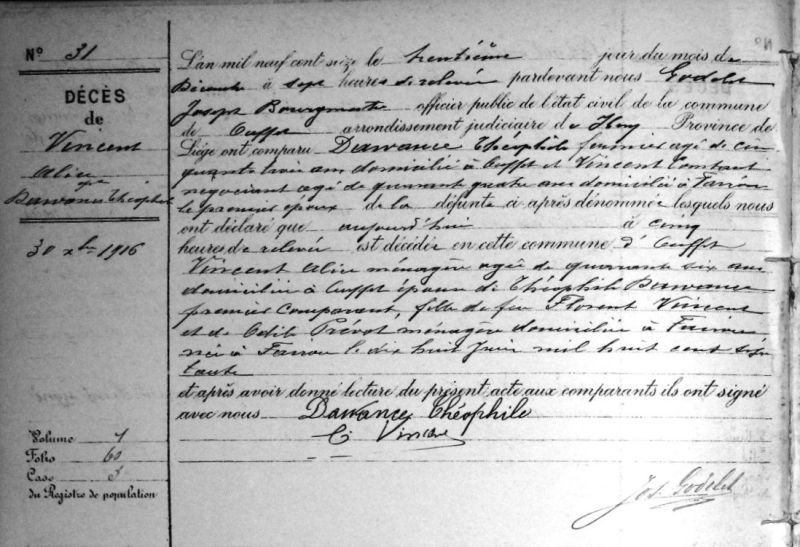 N° 31
DÉCÈS
de
Vincent
Alice
épse
Dawance Théophile
30 xbre 1916
Volume 1
Folio 60
Case 3
du Registre de population
L'an mil neuf cent seize le trentième jour du mois de
Décembre à sept heures de relevée pardevant nous Godelet
Joseph Bourgmestre officier public de l'état civil de la commune
de Ouffet arrondissement judiciaire de Huy Province de
Liége ont comparu Dawance Théophile fermier agé de cin
quante trois ans domicilié à Ouffet et Vincent Constant
negociant agé de quarante quatre ans domicilié à Fairon
le premier époux de la défunte ci après dénommée lesquels nous
ont déclaré que aujourd'hui à cinq
heures de relevée est décédée en cette commune d'Ouffet
Vincent Alice ménagère agée de quarante six ans
domiciliée à Ouffet épouse de Théophile Dawance
premier comparant, fille de feu Florent Vincent
et de Odile Prévot ménagère domiciliée à Fairon
née à Fairon le dix huit Juin mil huit cent septante
et après avoir donné lecture du présent acte aux comparants ils ont signé
avec nous Dawance Théophile
C. Vincent
Jos. Godelet